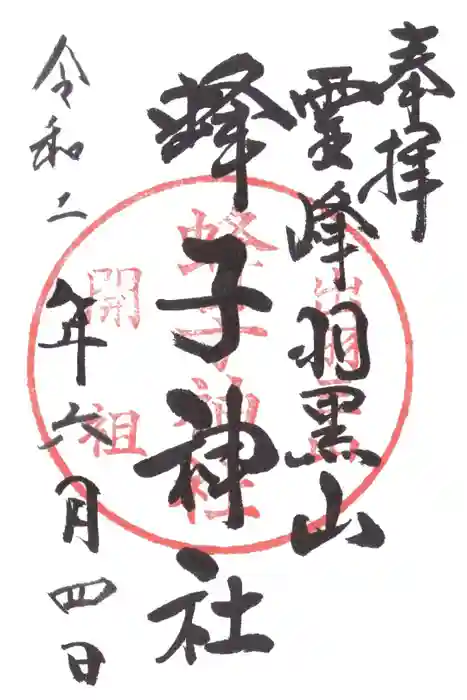 奉拝
霊峰羽黒山
蜂子神社
令和二年六月四日
蜂子神社
開祖